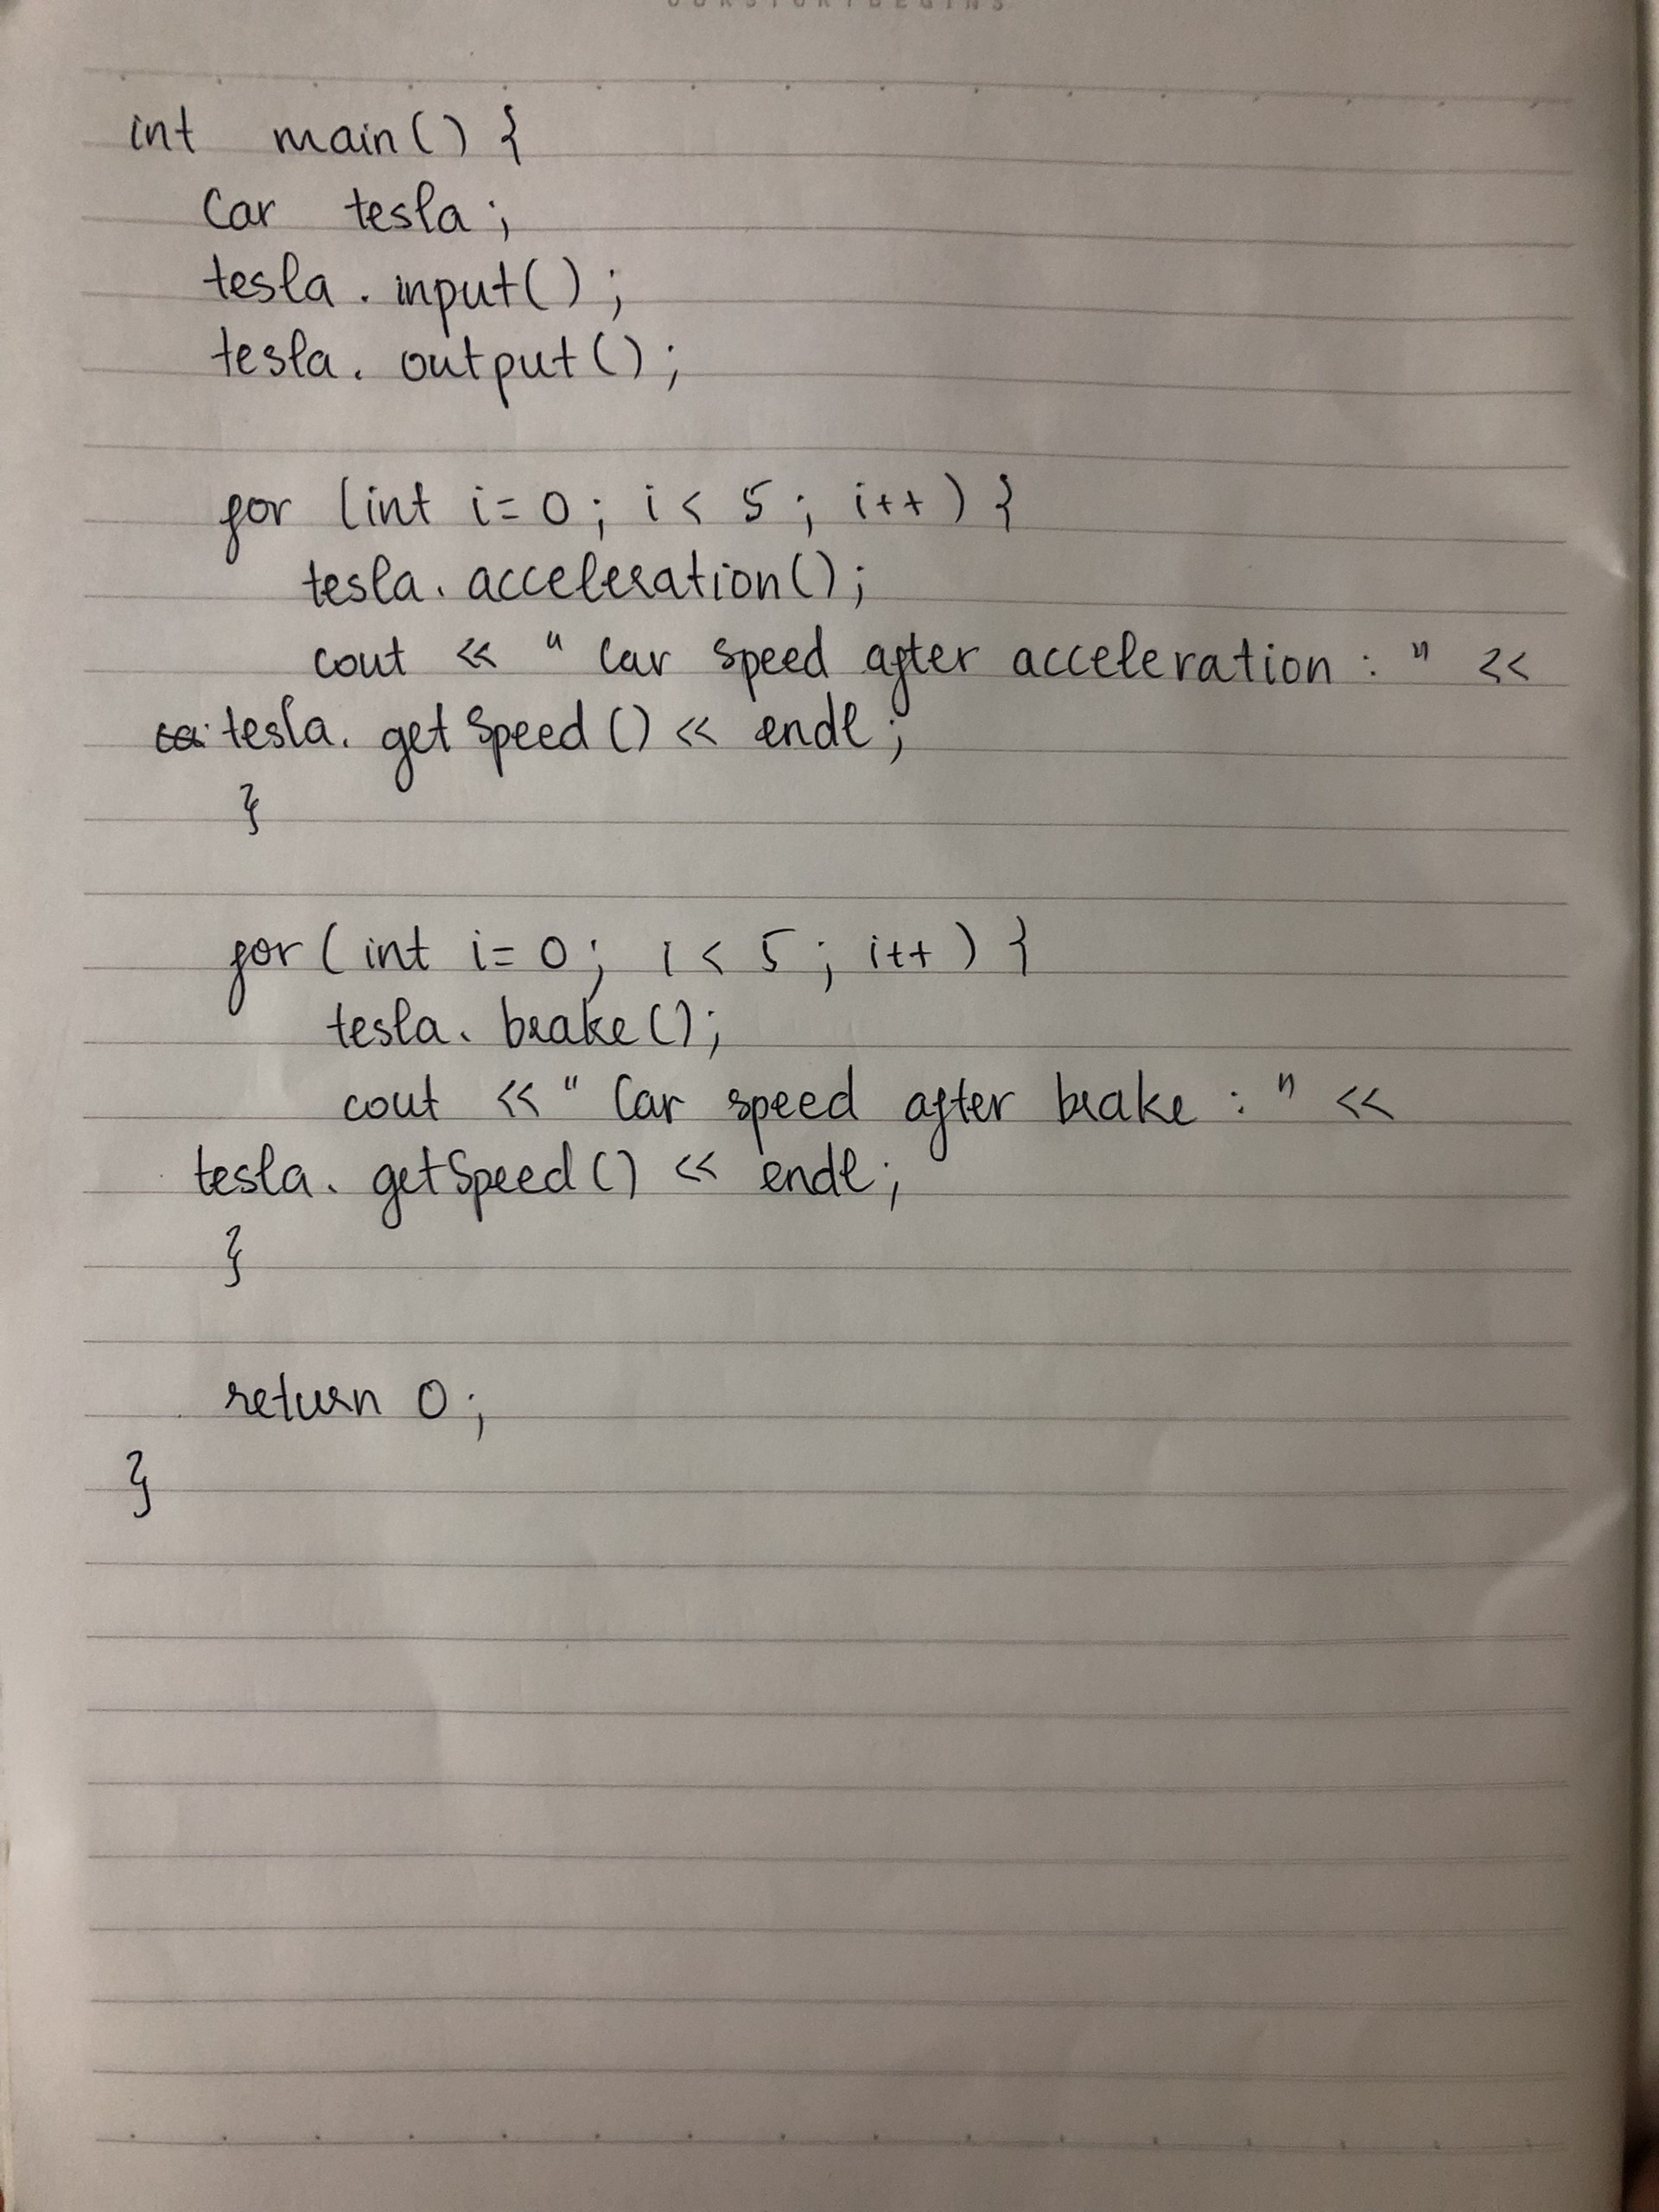 OURSTORYBEGINS
int main() {
Car tesla;
tesla. input();
tesla. output();
for (int i=0; i< 5; i++) {
tesla. acceleration();
cout << " Car speed after acceleration : " <<
tesla. getSpeed() << endl;
}
for (int i=0; i < 5; i++) {
tesla. brake();
cout << " Car speed after brake : " <<
tesla. getSpeed() << endl;
}
return 0;
}